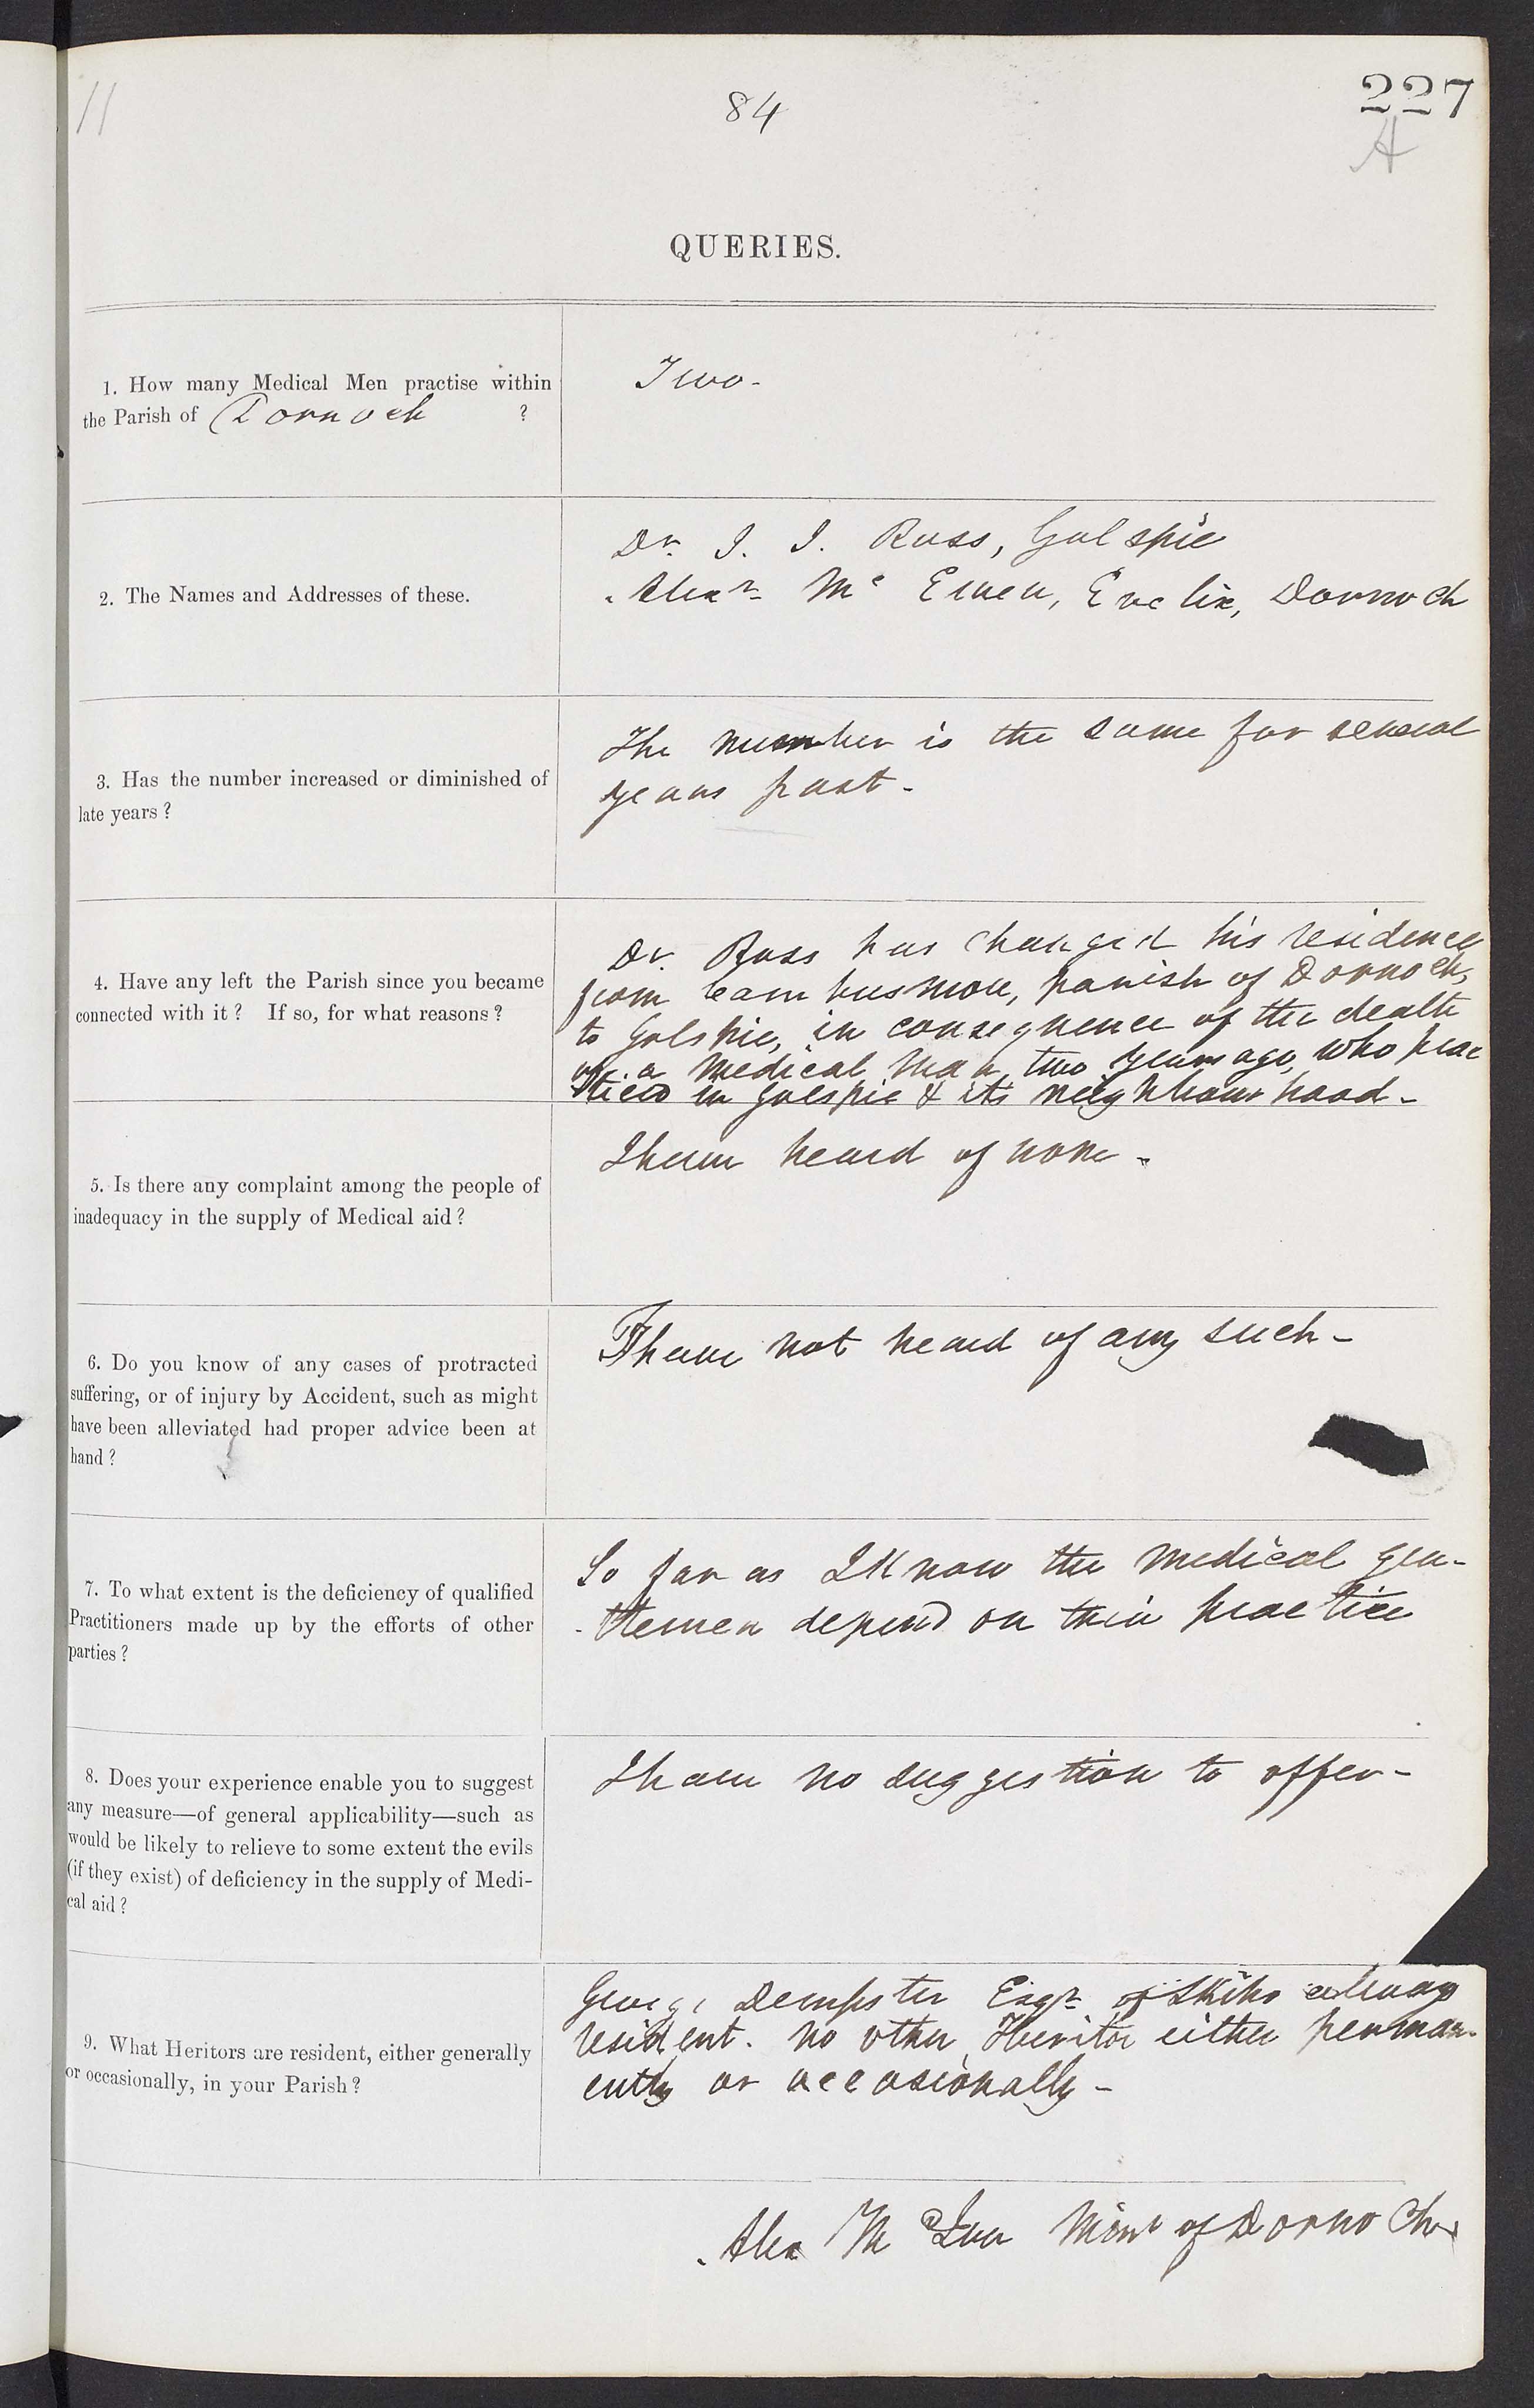 11
84
227
A
QUERIES.
1. How many Medical Men practise within
the Parish of Dornoch ?
Two-
2. The Names and Addresses of these.
Dr. I. I. Ross, Golspie
Alexr. Mc Ewen, Evelix, Dornoch
3. Has the number increased or diminished of
late years ?
The number is the same for several
years past-
4. Have any left the Parish since you became
connected with it ? If so, for what reasons ?
Dr. Ross has changed his residence
from Cambusmore, parish of Dornoch,
to Golspie, in consequence of the death
of a Medical Man two years ago, who prac
ticed in Golspie & its neighbourhood-
5. Is there any complaint among the people of
inadequacy in the supply of Medical aid ?
I have heard of none-
6. Do you know of any cases of protracted
suffering, or of injury by Accident, such as might
have been alleviated had proper advice been at
hand ?
I have not heard of any such-
7. To what extent is the deficiency of qualified
Practitioners made up by the efforts of other
parties ?
So far as I Know the Medical gen-
-tlemen depend on their practice
8. Does your experience enable you to suggest
any measure—of general applicability—such as
would be likely to relieve to some extent the evils
(if they exist) of deficiency in the supply of Medi-
cal aid ?
I have no suggestion to offer-
9. What Heritors are resident, either generally
or occasionally, in your Parish ?
George Dempster Esqr. of Skibo always
resident. No other Heritor either perman-
ently or occasionally-
Alex Minr of Dornoch